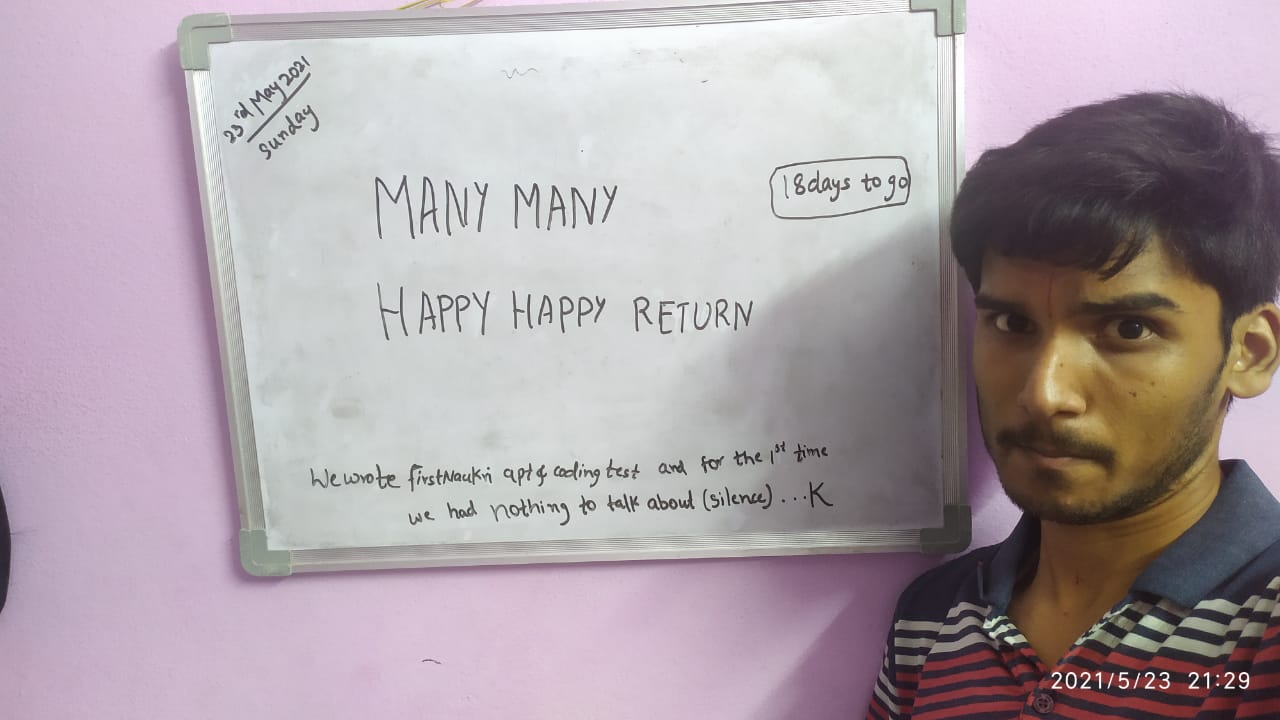 23rd May 2021
Sunday
MANY MANY
18days to go
HAPPY HAPPY RETURN
We wrote firstNaukri apt & coding test and for the 1st time
we had nothing to talk about (silence)...K
2021/5/23 21:29